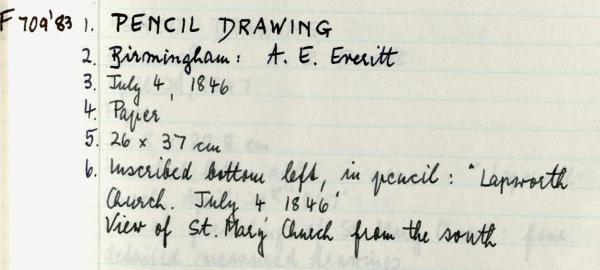 F709'83 1. PENCIL DRAWING
2. Birmingham: A. E. Everitt
3. July 4, 1846
4. Paper
5. 26 x 37 cm
6. Inscribed bottom left, in pencil: "Lapworth
Church. July 4 1846"
View of St. Mary's Church from the south